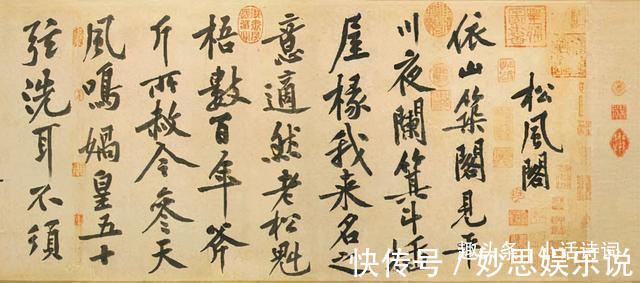 松風閣
依山築閣見平
川夜闌箕斗插
屋椽我来名之
意適然老松魁
梧數百年斧
斤所赦今參天
風鳴媧皇五十
弦洗耳不須
趣头条 | 小话诗词
快传号 / 妙思娱乐说